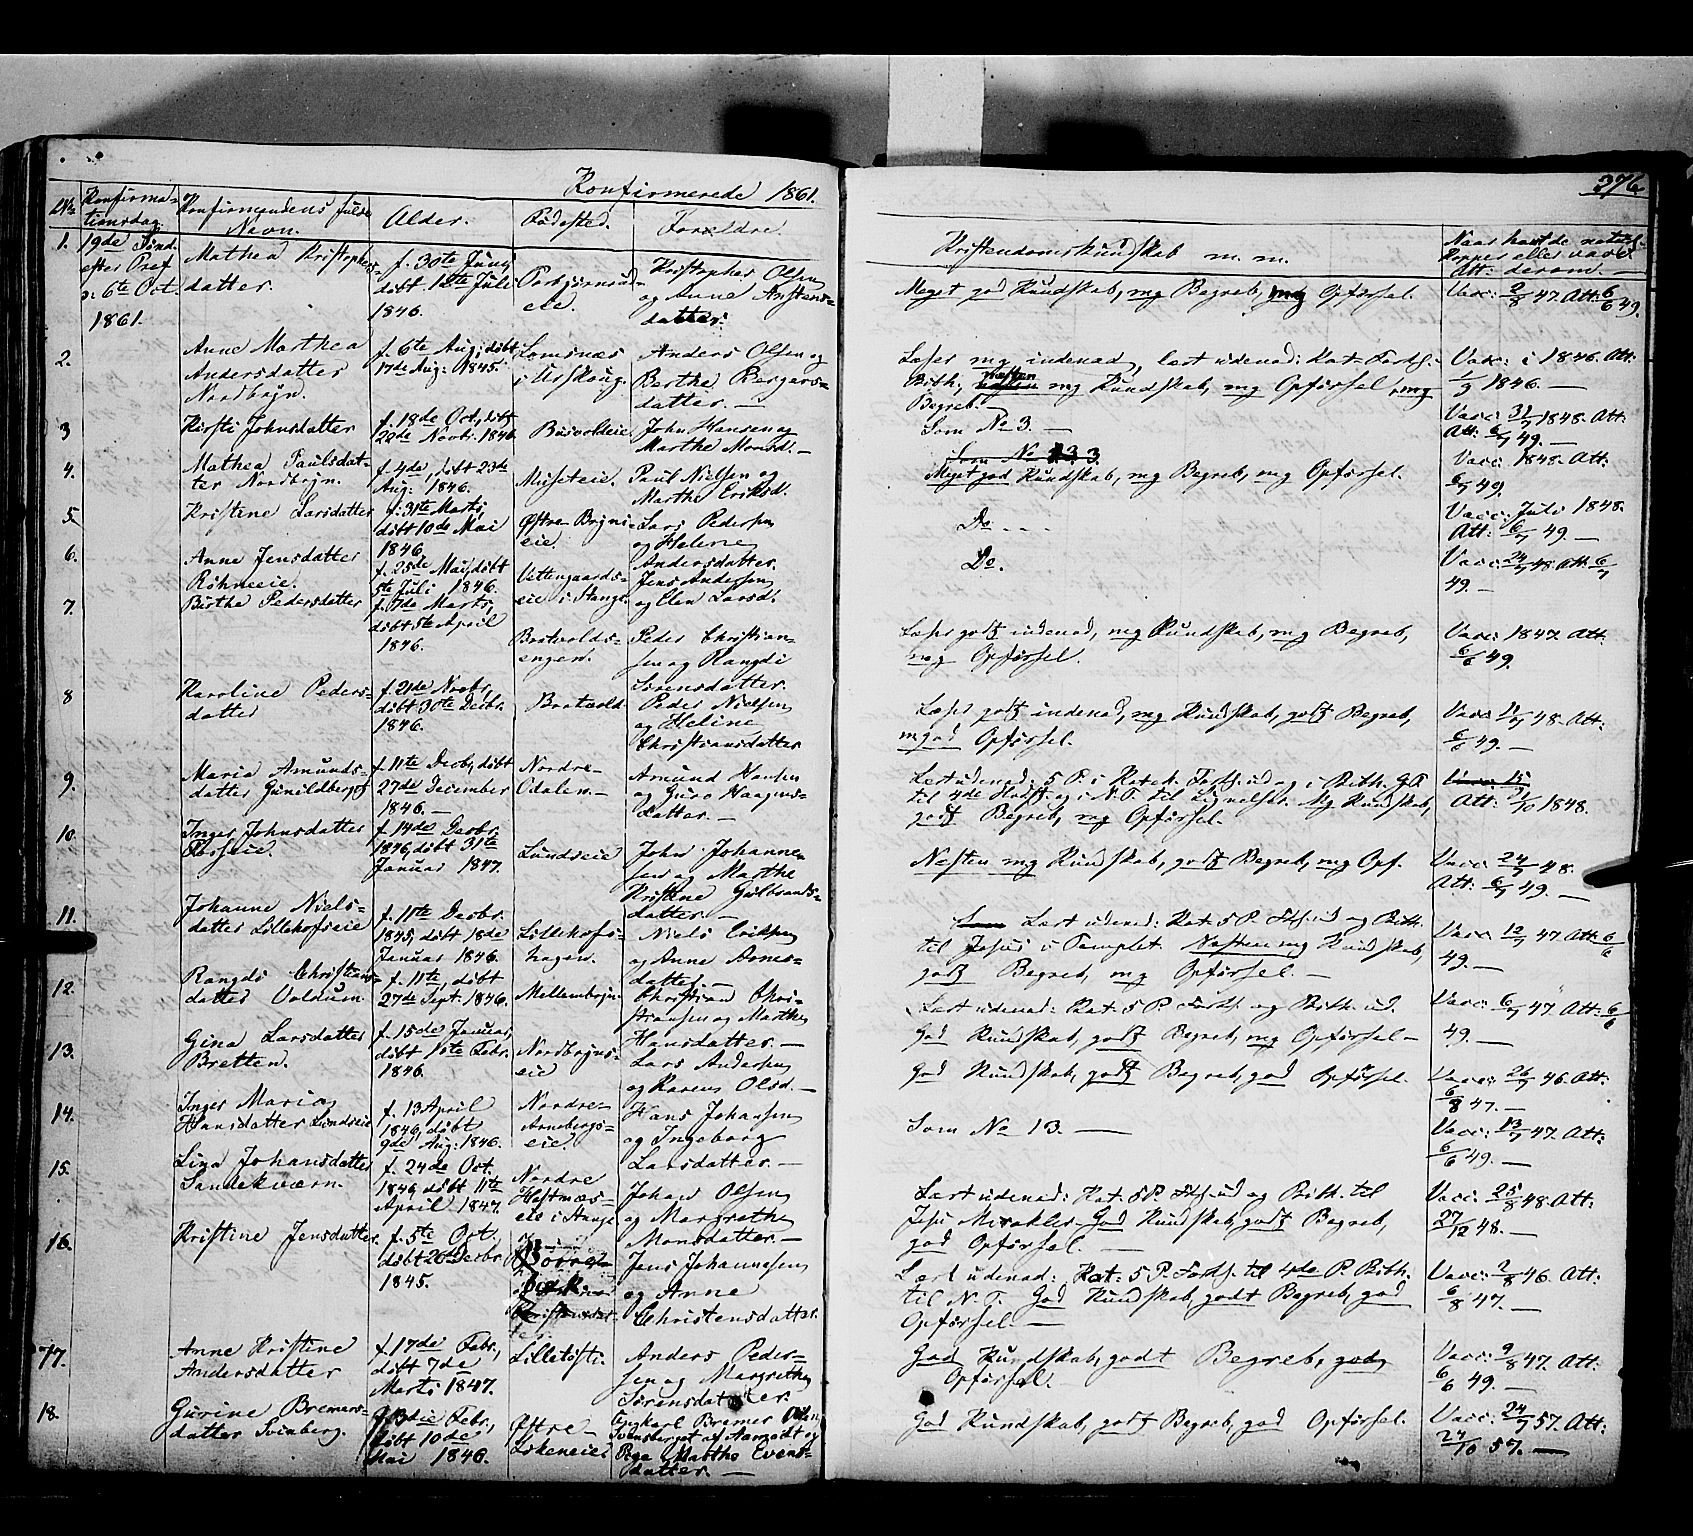 Konfirmerede 1861.
376
No Konfirmationsdag. Konfirmandens fulde Navn. Alder. Fødested. Forældre.
Kristendomskundskab m. m.
Naar havt de naturl. Kopper eller vacc. Att: derom.
1. 19de Sønd. efter Præf ɔ: 6te Oct. 1861.
Mathea Kristophers-
datter.
f. 30te Juni,
døbt 12te Juli
1846.
eie.
Kristopher Olsen
og Anne Anstens-
datter.
Meget god Kundskab, mg Begreb, mg Opførsel.
Vacc: 2/8 47. Att: 6/6 49.
2. Anne Marthea
Andersdatter
Nordbrÿn.
f. 6te Aug, døbt
17de Aug: 1845.
Lomsnæs
i Urskoug.
Anders Olsen og
Berthe Bergers-
datter. —
Læser mg indenad, læst udenad: Kat. Forkl.
Bibh; næsten mg Kundskab, mg Opførsel, mg
Begreb. —
Vacc: i 1846. Att:
1/9 1846. —
3 Kirsti Johnsdatter
f. 18de Oct, døbt
22de Novbr. 1846.
John Hansen og
Marthe Monsd. —
Som No 3. —
Vacc: 31/7 1848. Att:
Att: 6/7 49. —
4. Mathea Paulsdat-
ter Nordbrÿn.
f. 4de, døbt 23de
Aug: 1846.
Museteie.
Paul Nielsen og
Marthe Eriksd.
Som No 3.
Meget god Kundskab, mg Begreb, mg Opførsel.
Vacc: 1848. Att:
6/7 49.
5. Kristine Larsdatter
f. 31te Marts,
døbt 10de Mai
1846.
Østre Brÿni-
eie.
Lars Pedersen
og Helene
Andersdatter.
Do. - - -
Vacc: Juli 1848.
Att: 6/7 49. —
6. Anne Jensdatter
Rÿhneeie.
f. 25de Mai, døbt
5te Juli 1846.
Vettengaards-
eie i Stange.
Jens Andersen
og Elen Larsd.
Do.
Vacc: 24/7 48. Att: 6/7
49. —
7. Birthe Pedersdatter
f. 7de Marts,
døbt 5te April
1846.
Brotvolds-
engen.
Peder Christian-
sen og Rangdi
Sørensdatter.
Læser godt indenad, mg Kundskab, mg Begreb,
meg Opførsel.
Vacc: 1847. Att:
6/6 49.
8 Karoline Peders-
datter
f. 21de Novbr,
døbt 30te Decbr.
1846.
Brotvold
Peder Nielsen
og Heline
Christiansdatter
Læser godt indenad, mg Kundskab, godt Begreb,
mgod Opførsel.
Vacc: 11/7 48. Att:
6/6 49. —
9. Maria Amunds-
datter Gunildberget
f. 11te Decb, døbt
27de December
1846. —
Nordre-
Odalen. —
Amund Hansen
og Guro Haagens-
datter. —
Læst udenad: 5 P. i Katek. Forkl. ud og i Bibh. G.T.
til 4de og i N.T. til Lignelser. Mg Kundskab,
godt Begreb, mg Opførsel.
Att: 21/10 1848.
10. Inger Johnsdatter
f. 14de Decbr.
1846, døbt 31te
Januar 1847.
Lundseie
John Johanne-
sen og Marthe
Kristine Gulbrands-
datter. —
Næsten mg Kundskab, godt Begreb, mg Opf.
Vacc: 24/7 48.
Att: 6/7 49. —
11. Johanne Niels-
datter Lillehofseie
f. 11te Decbr.
1845, døbt 18de
Januar 1846.
Lillehofs-
hagen.
Niels Eriksen
og Anne Arnes-
datter. —
Læst udenad: Kat. 5 P. Fkl. ud og Bibh.
til Jesus i Templet. Næsten mg Kundskab,
godt Begreb, mg Opførsel —
Vacc: 12/7 47 Att: 6/6
49. —
12. Rangdi Christians-
datter Voldum
f. 11te, døbt
27de Sept. 1846.
Mellembrÿn
Christian Chri-
stiansen og Marthe
Hansdatter. —
Læst udenad: Kat. 5 P. Forkl. og Bibh. ud.
God Kundskab, godt Begreb, mg Opførsel —
Vacc: 6/7 47. Att: 6/6
49. —
13. Gina Larsdatter
Bretten.
f. 15de Januar,
døbt 1ste Febr.
1846.
Nordbrÿns-
eie
Lars Andersen
og Karen Olsd. —
God Kundskab, godt Begreb, god Opførsel.
Vacc: 26/7 46. Att:
6/8 47. —
14. Inger Maria
Hansdatter Lundseie
f. 13 April
1846, døbt
9de Aug: 1846.
Nordre-
Arnebergs-
eie.
Hans Johansen
og Ingeborg
Larsdatter. —
Som No 13. —
Vacc: 13/7 47. Att:
6/6 49. —
15. Lina Johansdatter
Sandekværn.
f. 24de Oct.
1846, døbt 11te
April 1847.
Nordre
eie i Stange
Johan Olsen
og Margrethe
Monsdatter. —
Læst udenad: Kat. 5 P. Fkl. ud og Bibh. til
Jesu Mirakler. God Kundskab, godt Begreb,
god Opførsel. —
Vacc: 25/8 48. Att:
27/12 48. —
16. Kristine Jensdatter.
f. 5te Oct.
døbt 26de Decbr
1845.
Jens Johannesen
og Anne
Christensdatter.
Læst udenad: Kat: 5 P. Forkl. til 4de P. Bibh.
til N. T. God Kundskab, godt Begreb, god
Opførsel —
Vacc: 2/8 46. Att:
6/8 47. —
17. Anne Kristine
Andersdatter
f. 17de Febr,
døbt 7de
Marts 1847.
Anders Peder-
sen og Margrethe
Sørensdatter.
God Kundskab, godt Begreb, god
Opførsel. —
Vacc: 9/8 47. Att:
6/6 49. —
18. Gurine Bremers-
datter Svenberg.
f. 13die Febr,
døbt 10de
Mai 1846.
Østre-
Lokeneie
Ungkarl Bremer Olsen
Svensberget af og
Pige Marthe Evens-
datter. —
God Kundskab, godt Begreb, god Opførsel.
Vacc: 24/7 57. Att:
24/10 57. —